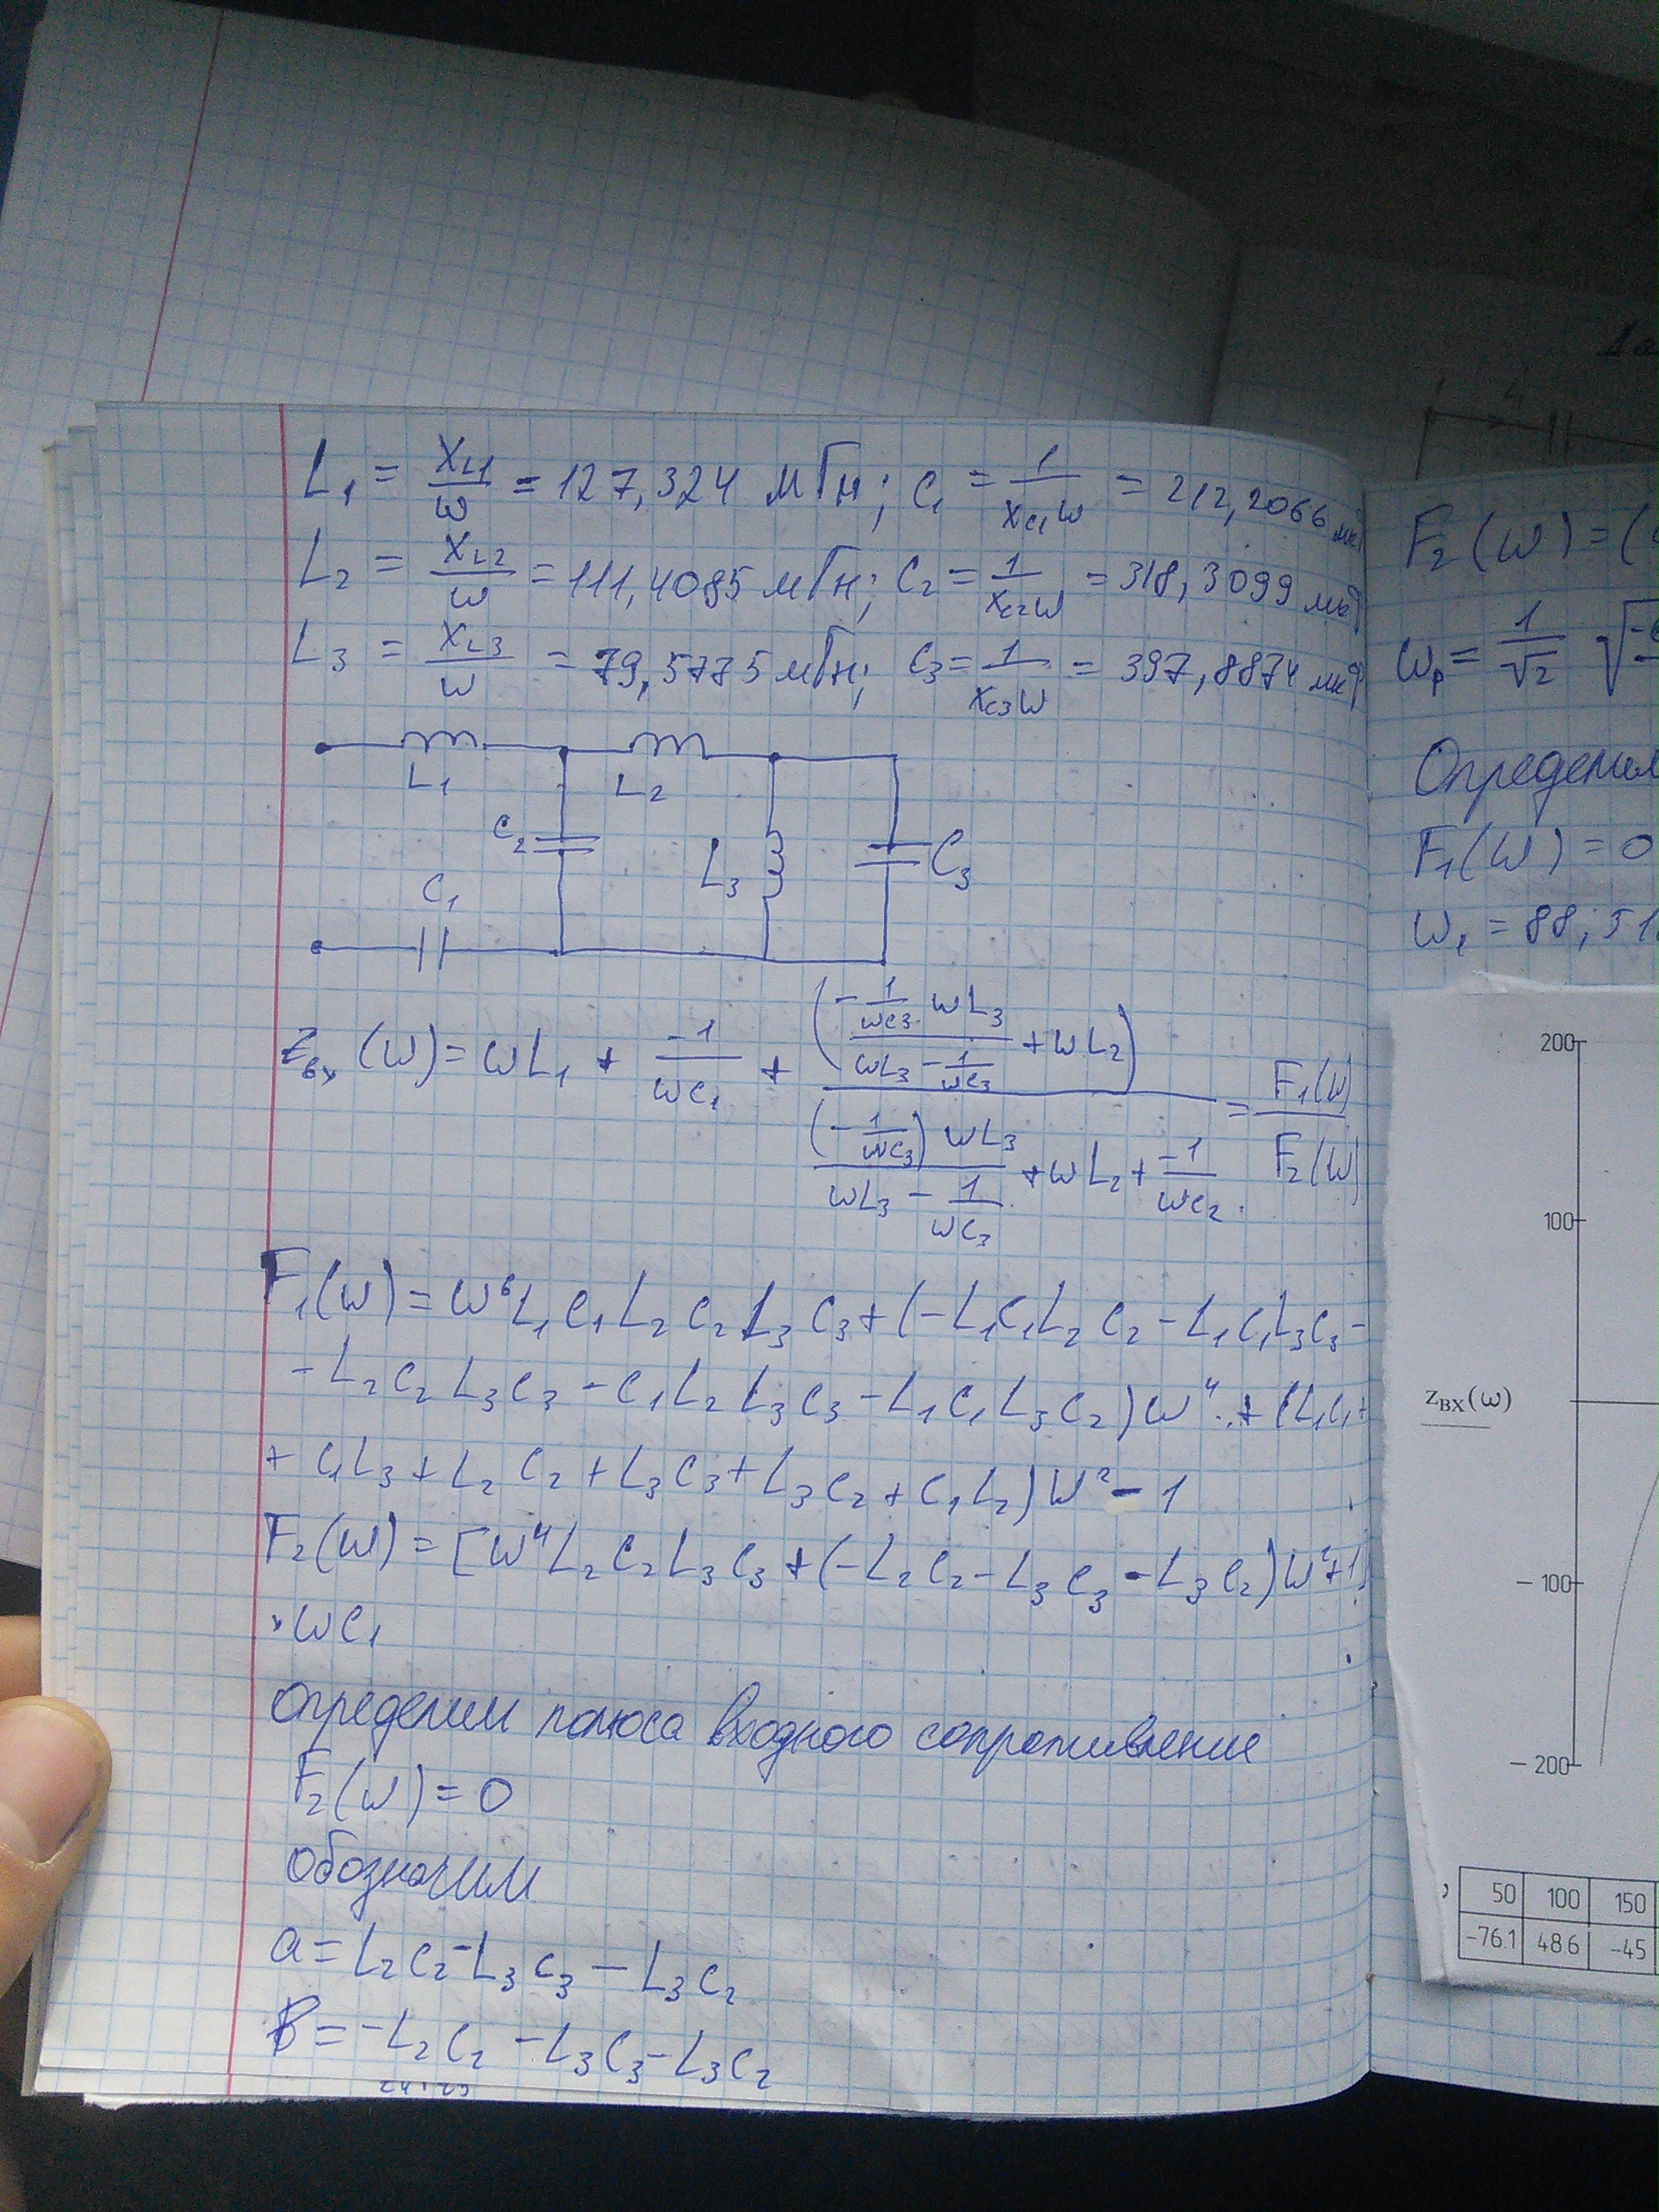 L₁ = X_L1/ω = 127,324 мГн; C₁ = 1/(X_C1 ω) = 212,2066 мкФ
L₂ = X_L2/ω = 111,4085 мГн; C₂ = 1/(X_C2 ω) = 318,3099 мкФ
L₃ = X_L3/ω = 79,5775 мГн; C₃ = 1/(X_C3 ω) = 397,8874 мкФ
L₁
L₂
C₂
L₃
C₃
C₁
Z_вх (ω) = ωL₁ + (-1)/(ωC₁) + ((-1/(ωC₃) ωL₃)/(ωL₃ - 1/(ωC₃)) + ωL₂)/(((-1/(ωC₃)) ωL₃)/(ωL₃ - 1/(ωC₃)) + ωL₂ + (-1)/(ωC₂)) = F₁(ω)/F₂(ω)
F₁(ω) = ω⁶L₁C₁L₂C₂L₃C₃ + (-L₁C₁L₂C₂ - L₁C₁L₃C₃ -
- L₂C₂L₃C₃ - C₁L₂L₃C₃ - L₁C₁L₃C₂)ω⁴ + (L₁C₁ +
+ C₁L₃ + L₂C₂ + L₃C₃ + L₃C₂ + C₁L₂)ω² - 1
F₂(ω) = [ω⁴L₂C₂L₃C₃ + (-L₂C₂ - L₃C₃ - L₃C₂)ω² + 1]
×ωC₁
Определим полюса входного сопротивление
F₂(ω) = 0
Обозначим
a = L₂C₂ - L₃C₃ - L₃C₂
B = -L₂C₂ - L₃C₃ - L₃C₂
F₂(ω) = (
ωₚ = 1/√2 √
Определим
F₁(ω) = 0
ω₁ = 88,51
200
100
Z_ВХ(ω)
− 100
− 200
50 100 150
−76.1 48.6 −45